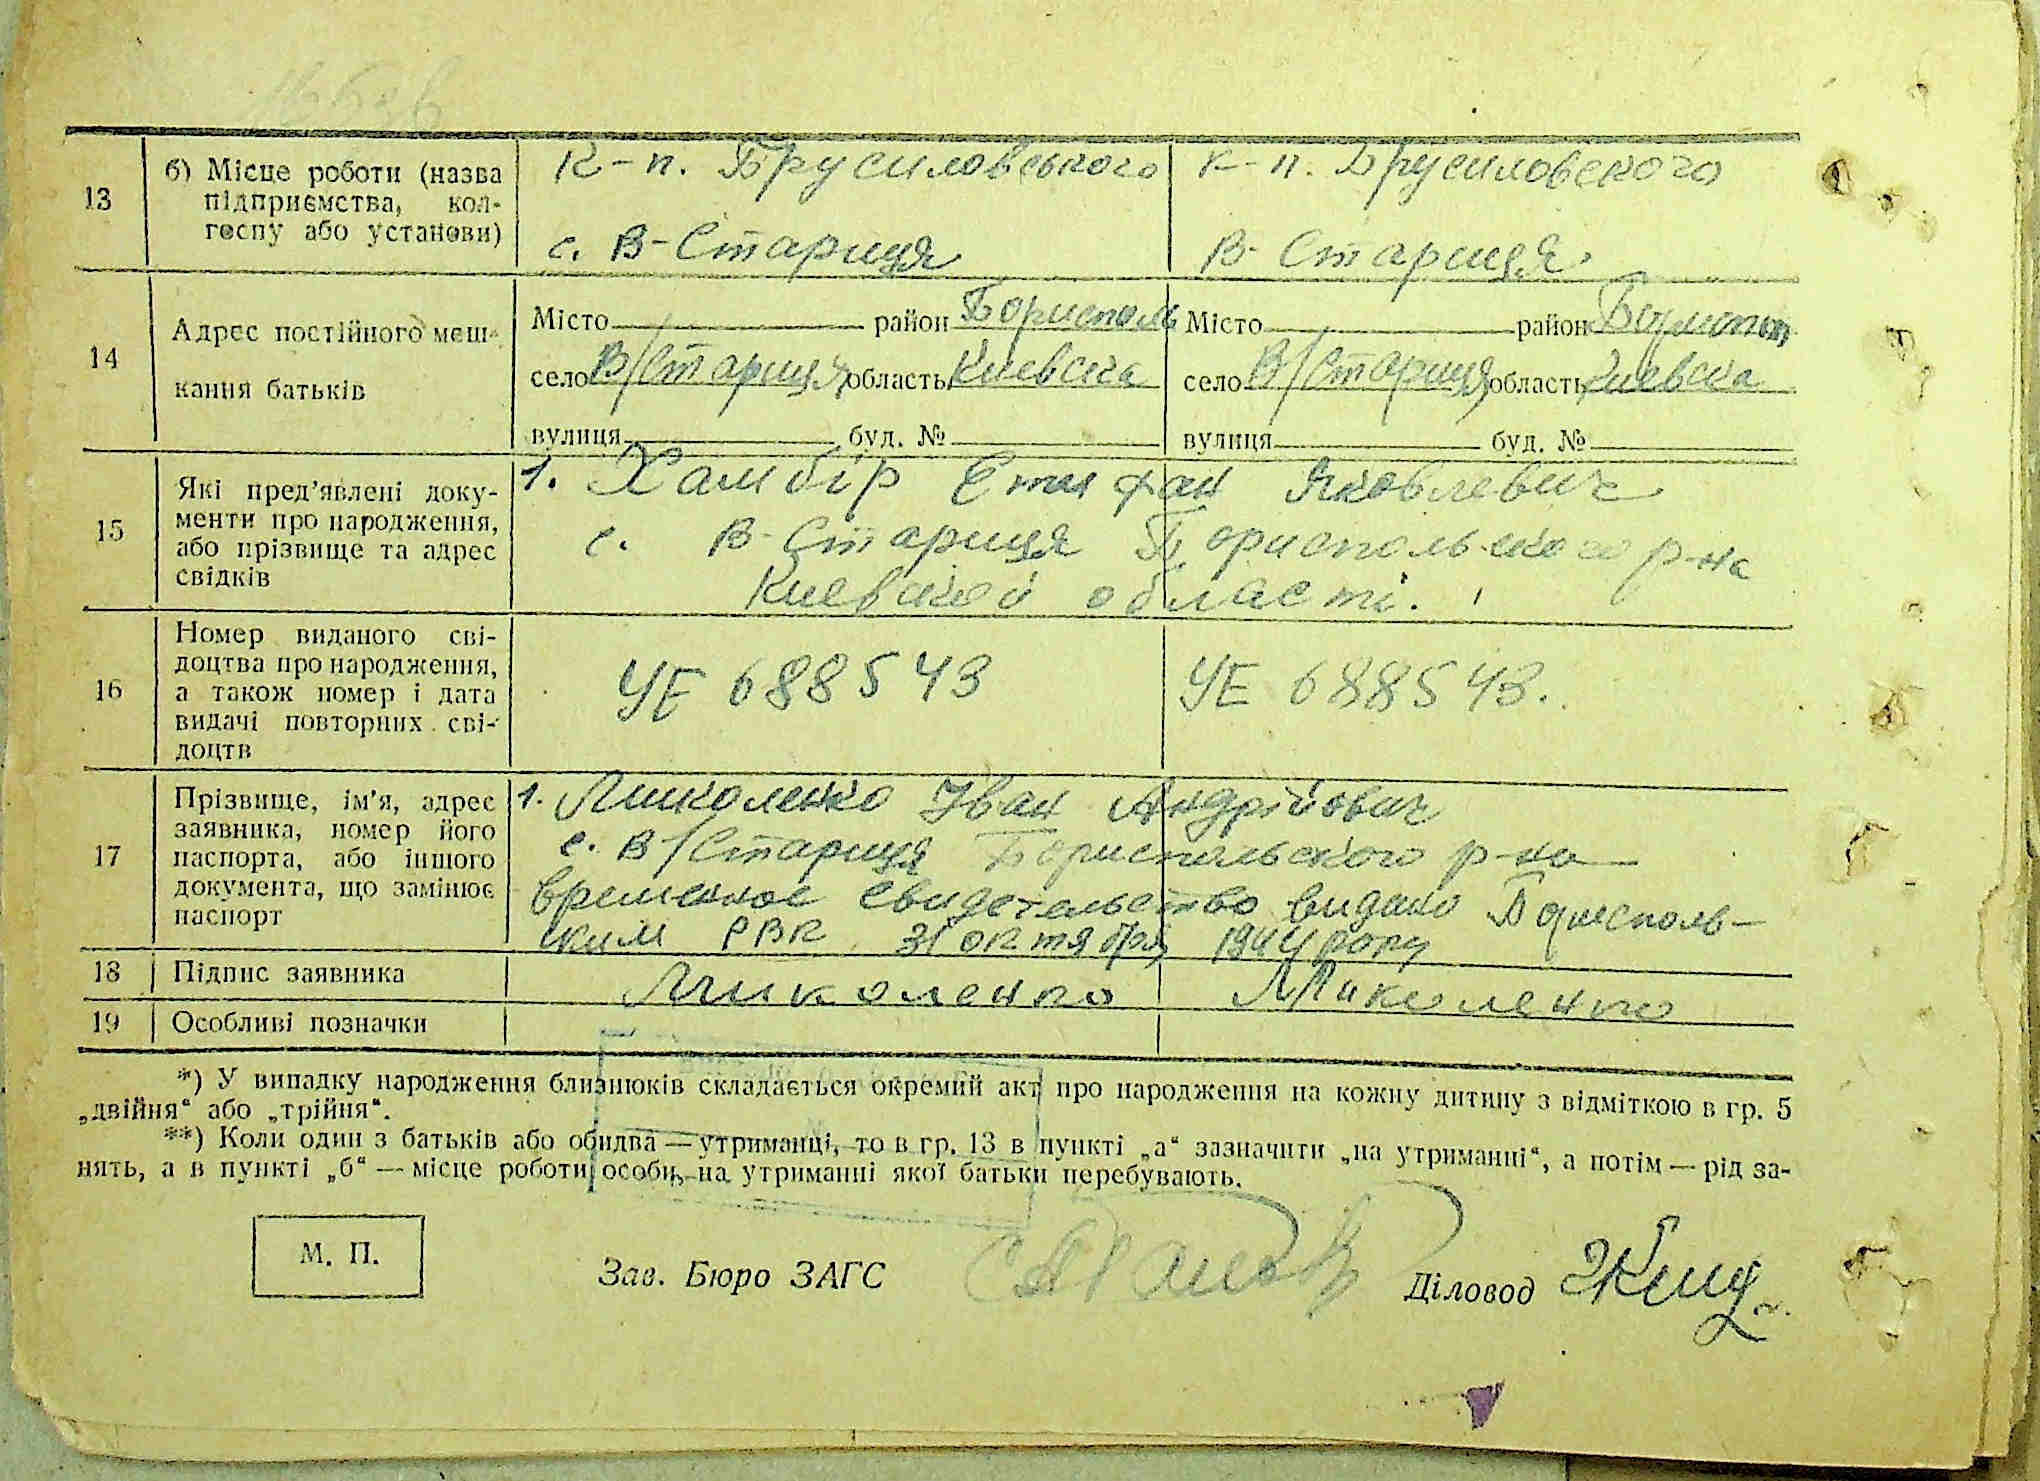 13
б) Місце роботи (назва підприємства, кол-
геспу або установи)
К-п. Брусиловського
с. В-Стариця
к-п. Брусиловского
В-Стариця
14
Адрес постійного меш-
кання батьків
Місто район Бориспол
село В/Стариця область Киевска
вулиця буд. №
Місто район
село В/Стариця область Киевска
вулиця буд. №
15
Які пред'явлені доку-
менти про народження,
або прізвище та адрес
свідків
1. Хамбір Степан Яковлевич
с. В-Стариця Бориспольского р-на
Киевской області.
16
Номер виданого сві-
доцтва про народження,
а також номер і дата
видачі повторних сві-
доцтв
УЕ 688543
УЕ 688543.
17
Прізвище, ім'я, адрес
заявника, номер його
паспорта, або іншого
документа, що замінює
паспорт
1. Миколенко Іван Андрійович
с. В/Стариця Бориспольского р-на
временное свидетельство видано Борисполь-
ским РВК 31 октября 1944 року
18
Підпис заявника
Миколенко
Миколенко
19
Особливі позначки
*) У випадку народження близнюків складається окремий акт про народження на кожну дитину з відміткою в гр. 5
„двійня“ або „трійня“.
**) Коли один з батьків або обидва — утриманці, то в гр. 13 в пункті „а“ зазначити „на утриманні“, а потім — рід за-
нять, а в пункті „б“ — місце роботи особи, на утриманні якої батьки перебувають.
М. П.
Зав. Бюро ЗАГС
Діловод